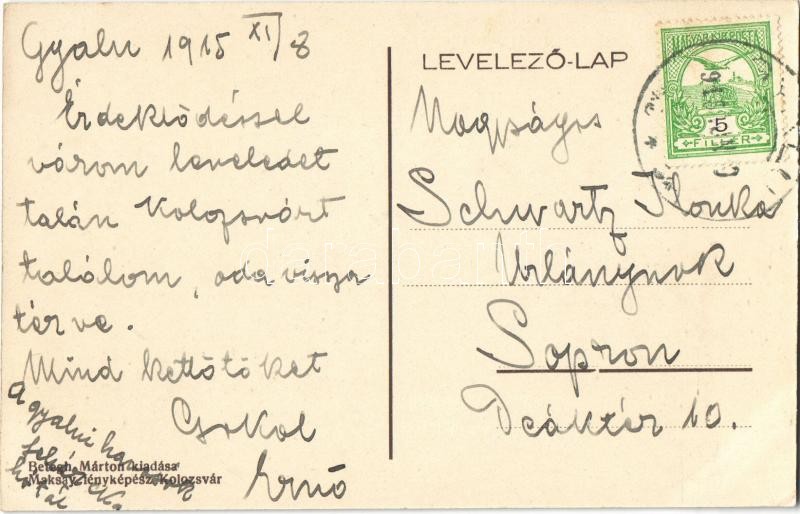 Gyalu 1915 XI/8
Érdeklődéssel
várom leveledet
talán Kolozsvárt
találom, oda vissza
térve.
Mind kettőtöket
Csokol
Ernő
a gyalui havasok
Betegh Márton kiadása
Maksay fényképész Kolozsvár
LEVELEZŐ-LAP
MAGYAR KIR. POSTA
5
FILLÉR
Nagyságos
Schwartz Ilonka
Urlánynak
Sopron
Deáktér 10.
darabanth